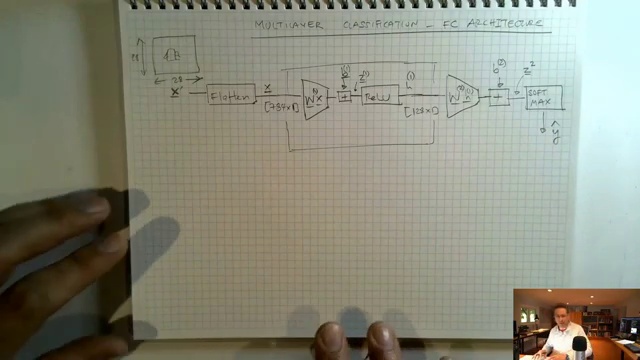 MULTILAYER CLASSIFICATION - FC ARCHITECTURE
28
28
X
Flatten
x
[784x1]
W⁽¹⁾x
b⁽¹⁾
+
z⁽¹⁾
ReLU
h⁽¹⁾
[128x1]
W⁽²⁾h⁽¹⁾
b⁽²⁾
+
z²
SOFT
MAX
ŷ